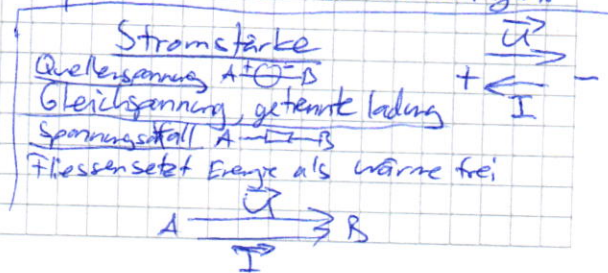 Stromstärke
Quellenspannung A + - B
Gleichspannung, getrennte ladung
Spannungsabfall A B
Fliessen setzt Energie als wärme frei
U
A B
I
U
+ -
I